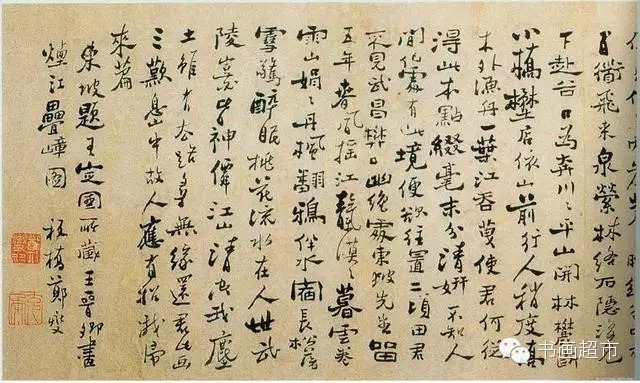 百道飛来泉縈林絡石隱復見
下赴谷口為奔川〻平山開林麓斷
小橋野店依山前行人稍度喬
木外漁舟一葉江吞天使君何從
得此本點綴毫末分清妍不知人
間何處有此境便欲往置二頃田君
不見武昌樊口幽絕處東坡先生留
五年春風搖江天漠〻暮雲卷
雨山娟〻丹楓翻鴉伴水宿長松落
雪驚醉眠桃花流水在人世武
陵豈必皆神僊江山清空我塵
土雖有去路尋無緣還君此畫
三歎息山中故人應有招我歸
來篇
東坡題王定國所藏王晉卿畫
煙江疊嶂圖 板橋鄭燮
书画超市